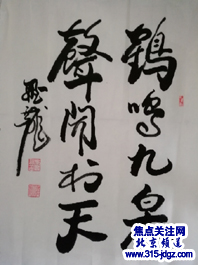 鶴鳴九皋
聲聞於天
焦点关注网
北京频道
www.315-jdgz.com